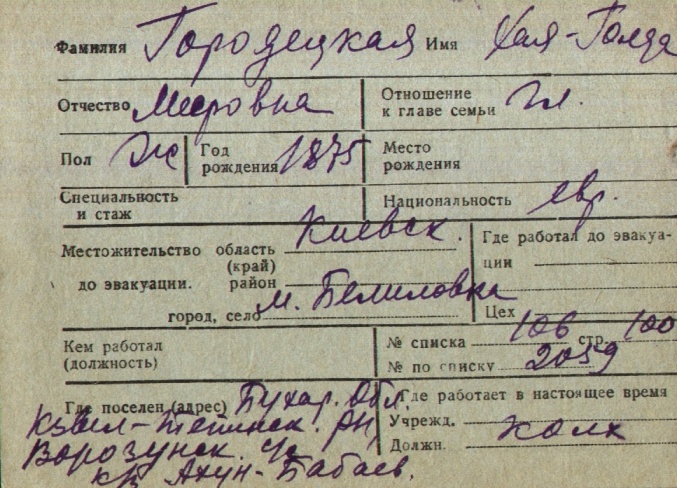 Фамилия Городецкая Имя Хая-Голда
Отчество Мееровна Отношение к главе семьи Гл.
Пол Ж Год рождения 1875 Место рождения
Специальность и стаж Национальность евр.
Местожительство область (край) Киевск. Где работал до эвакуации
до эвакуации. район
город, село м. Белиловка Цех
Кем работал (должность) № списка 106 стр. 100
№ по списку 2059
Где поселен (адрес) Бухар. Обл. Где работает в настоящее время
Кзыл-Тепинск. РН, Учрежд.
Ворозунск. с/с Должн. колх
к/з Ахун-Бабаев.